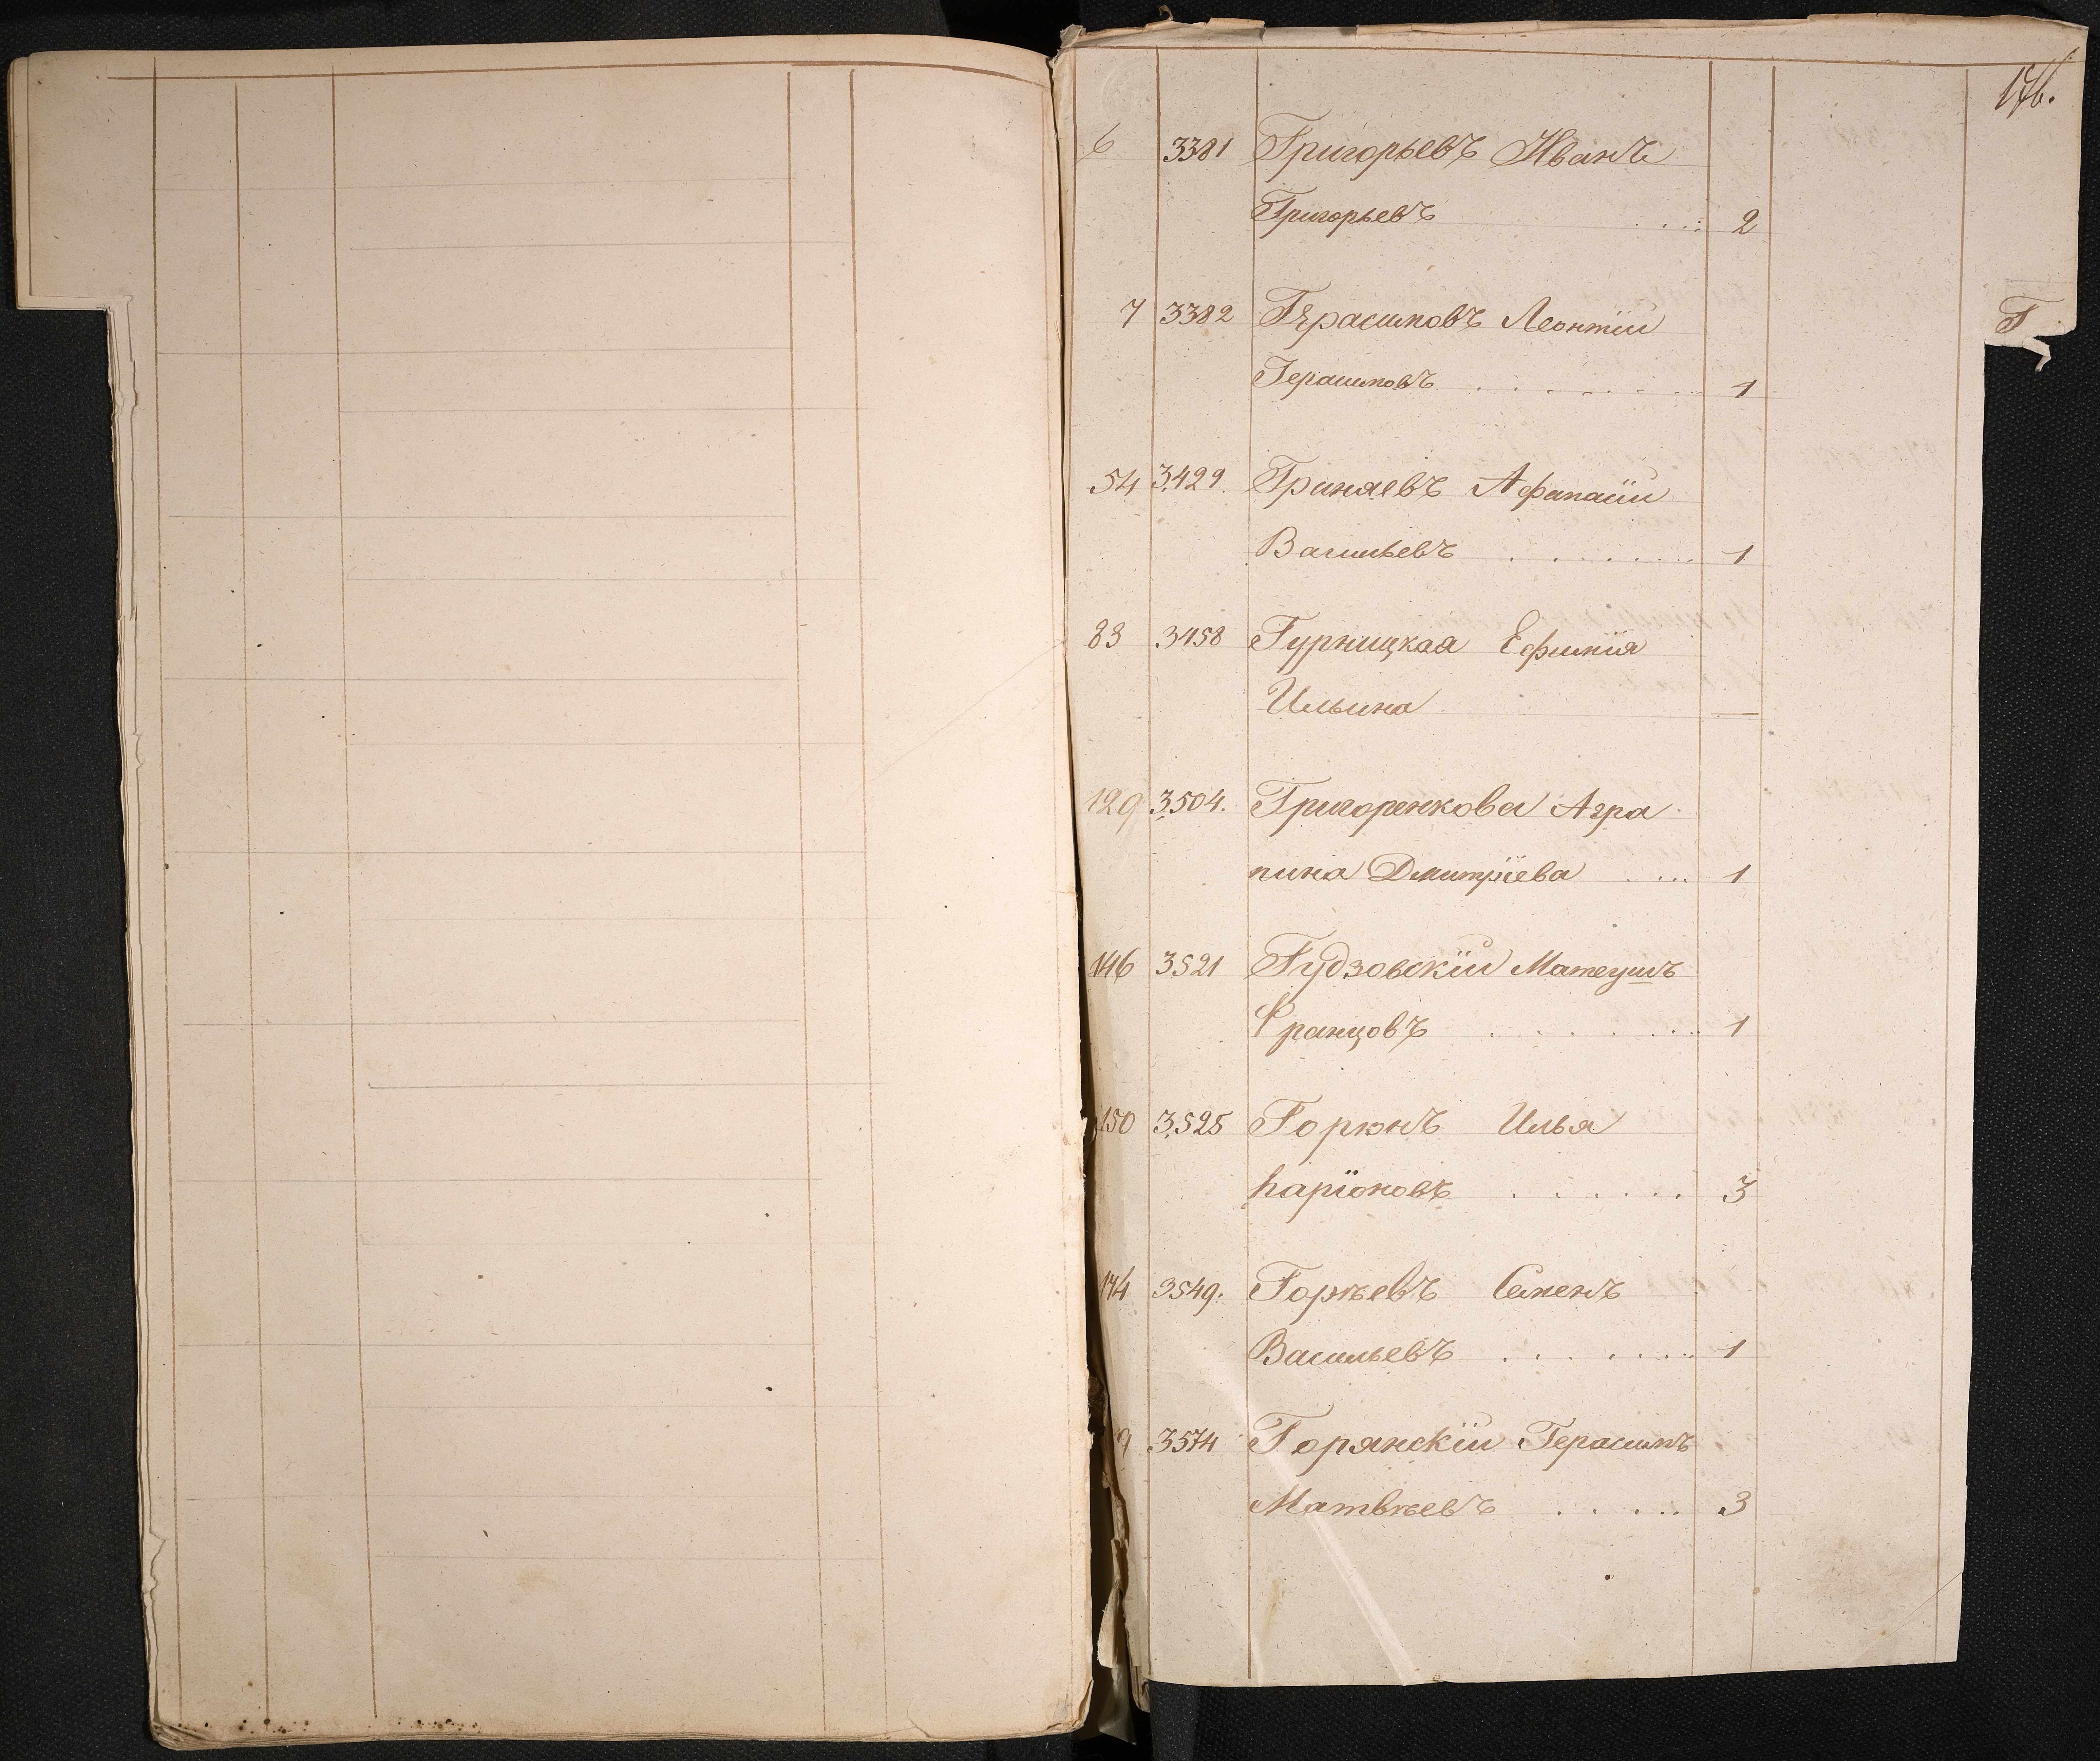 176.
Г
6 3381 Григорьевъ Иванъ
Григорьевъ .... 2
7 3382 Герасимовъ Леонтій
Герасимовъ ....... 1
54 3429. Гриняевъ Афанасій
Васильевъ ....... 1
83 3458 Гурницкая Ефимія
Ильина —
129 3504. Григоренкова Агра
пина Дмитріева .... 1
146 3521 Гудзовскій Матеушъ
Францовъ ....... 1
150 3525 Горюнъ Илья
Ларіоновъ ...... 3
174 3549. Горѣевъ Семенъ
Васильевъ ....... 1
9 3574 Горянскій Герасимъ
Матвѣевъ ..... 3